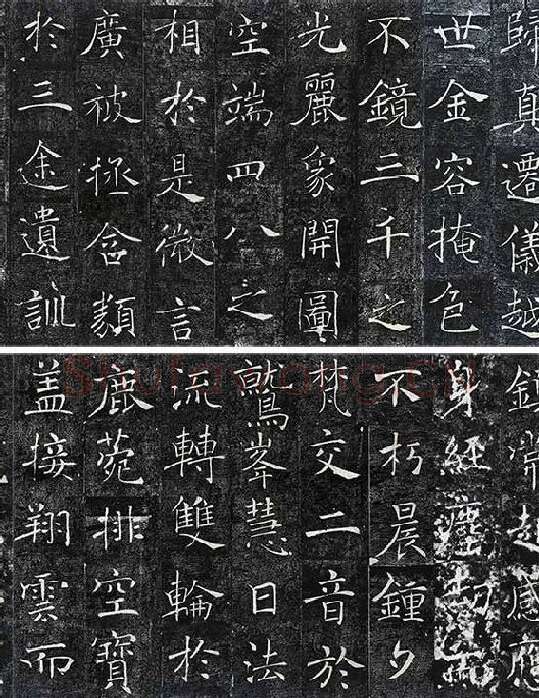 歸真遷儀越
世金容掩色
不鏡三千之
光麗象開圖
空端四八之
相於是微言
廣被拯含類
於三途遺訓
鎮常赴感應
身經塵劫而
不朽晨鍾夕
梵交二音於
鷲峯慧日法
流轉雙輪於
鹿菀排空寶
盖接翔雲而